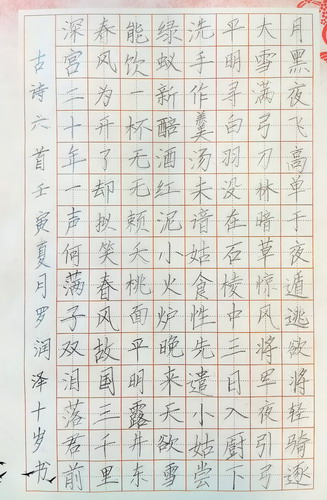 月黑夜飞高单于夜遁逃欲将轻骑逐
大雪满弓刀林暗草惊风将军夜引弓
平明寻白羽没在石棱中三日入厨下
洗手作羹汤未谙姑食性先遣小姑尝
绿蚁新醅酒红泥小火炉晚来天欲雪
能饮一杯无无赖夭桃面平明露井东
春风为开了却拟笑春风故国三千里
深宫二十年一声何满子双泪落君前
古诗六首壬寅夏月罗润泽十岁书